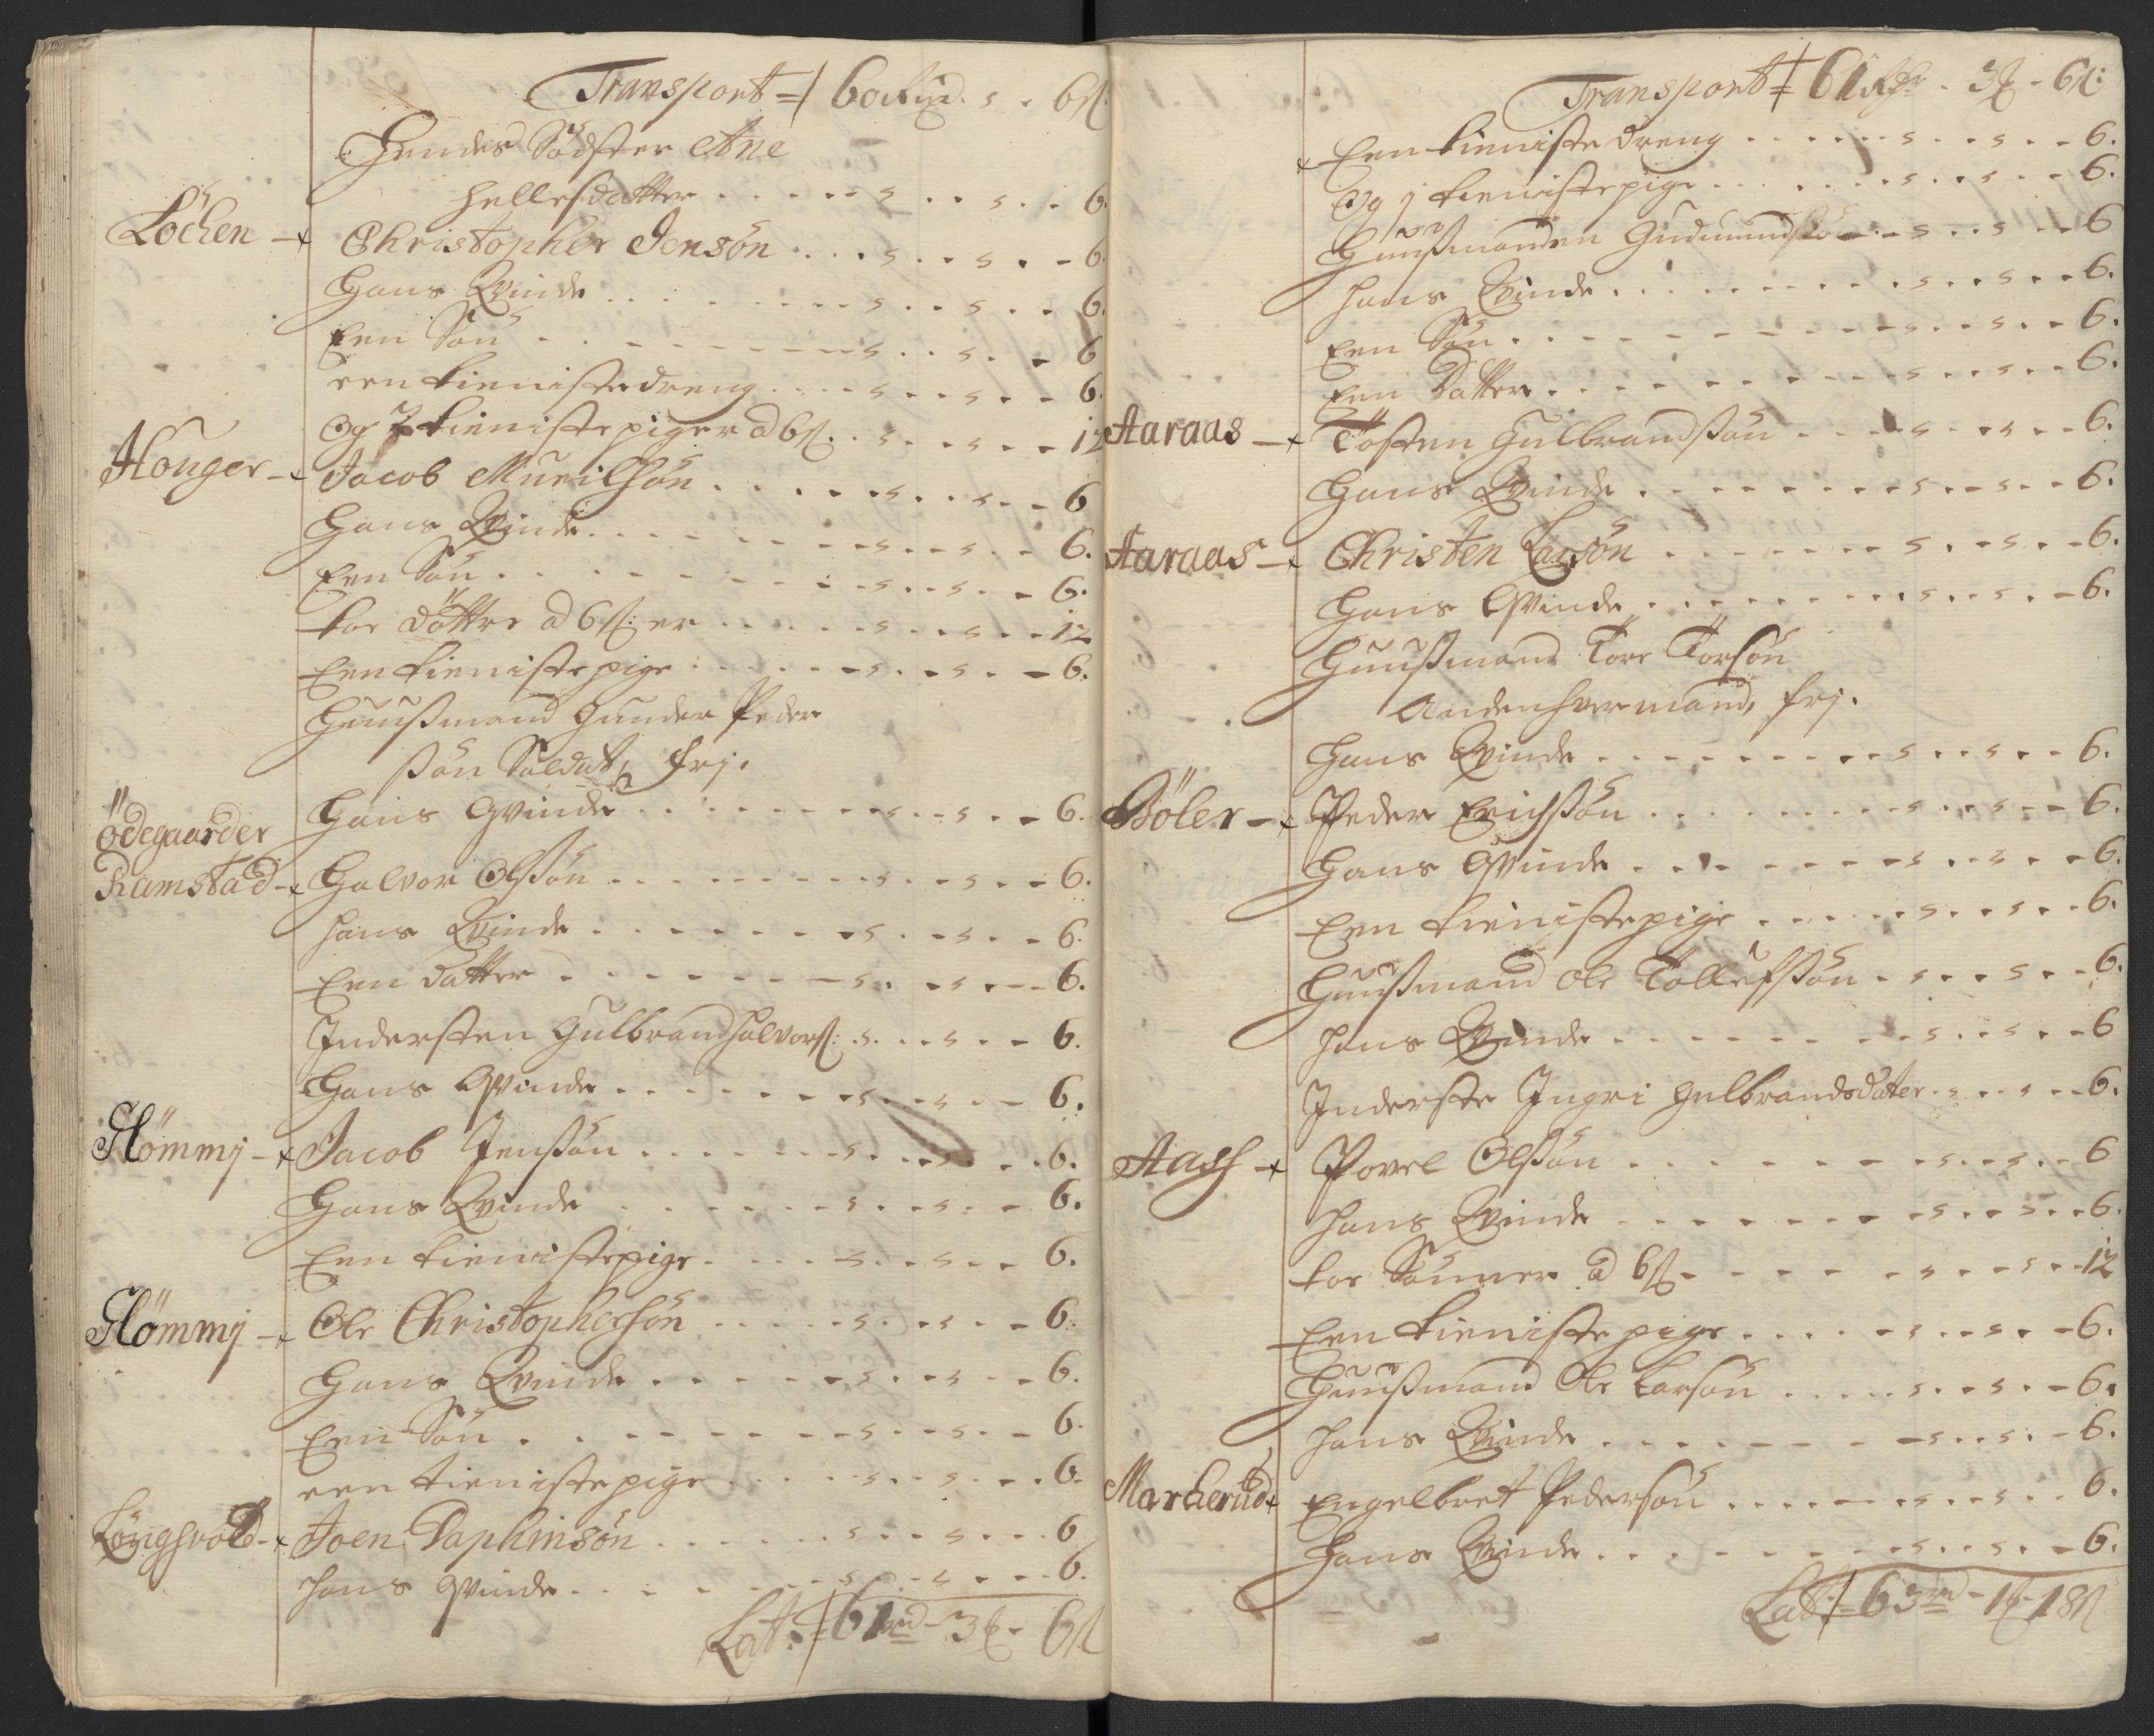 Transport = 60 Rixd. s - 6 ß
Hendes Södster Ane
Hellesdatter - s - s - 6.
Löchen - Christopher Jensön - s - s - 6.
Hans Qvinde - s - s - 6.
Een Sön - s - s - 6
een tienistedreng - s - s - 6.
Og 2 tienistepiger a 6 ß - s - s - 12
Houger - Jacob Mueilsön - s - s - 6
Hans Qvinde - s - s - 6.
Een Sön - s - s - 6.
toe döttre a 6 ß: er - s - s - 12
Een tienistepige - s - s - 6.
Huusmand Gunder Peder
sön Soldat, frj.
Hans Qvinde - s - s - 6.
Ödegaarder
Ramstad - Halvor Olsön - s - s - 6.
Hans Qvinde - s - s - 6.
Een datter - s - s - 6.
Indersten Gulbrand Halvorß: - s - s - 6.
Hans Qvinde - s - s - 6.
Flömmj - Jacob Jensön - s - s - 6.
Hans Qvinde - s - s - 6.
Een tienistepige - s - s - 6.
Flömmj - Ole Christophersön - s - s - 6.
Hans Qvinde - s - s - 6.
Een Sön - s - s - 6.
een tienistepige - s - s - 6.
Löngsvold - Joen Daphinsön - s - s - 6
Hans Qvinde - s - s - 6.
Lat: = 61 rd - 3 ß - 6 ß
Transport = 61 Rdr - 3 ß - 6 ß:
Een tieniste dreng - s - s - 6.
Og 1 tienistepige - s - s - 6.
Huusmanden Gudmund - s - s - 6
Hans Qvinde - s - s - 6.
Een Sön - s - s - 6.
Een Datter - s - s - 6.
Aaraas - Tosten Gulbrandsön - s - s - 6.
Hans Qvinde - s - s - 6.
Aaraas - Christen Larsön - s - s - 6.
Hans Qvinde - s - s - 6.
Huusmand Tore Torsön
Andenhvermand, frj.
Hans Qvinde - s - s - 6.
Böler - Peder Erichsön - s - s - 6.
Hans Qvinde - s - s - 6.
Een tienistepige - s - s - 6.
Huusmand Ole Tollefsön - s - s - 6.
Hans Qvinde - s - s - 6
Inderste Ingri Gulbrandsdater - s - s - 6.
Aass - Povel Olsön - s - s - 6
Hans Qvinde - s - s - 6.
toe Sönner a 6 ß - s - s - 12
Een tieniste pige - s - s - 6.
Huusmand Ole Larsön - s - s - 6.
Hans Qvinde - s - s - 6.
Marcherud - Engelbret Pedersön - s - s - 6.
Hans Qvinde - s - s - 6.
Lat: = 63 rd - 1 ß - 18 ß